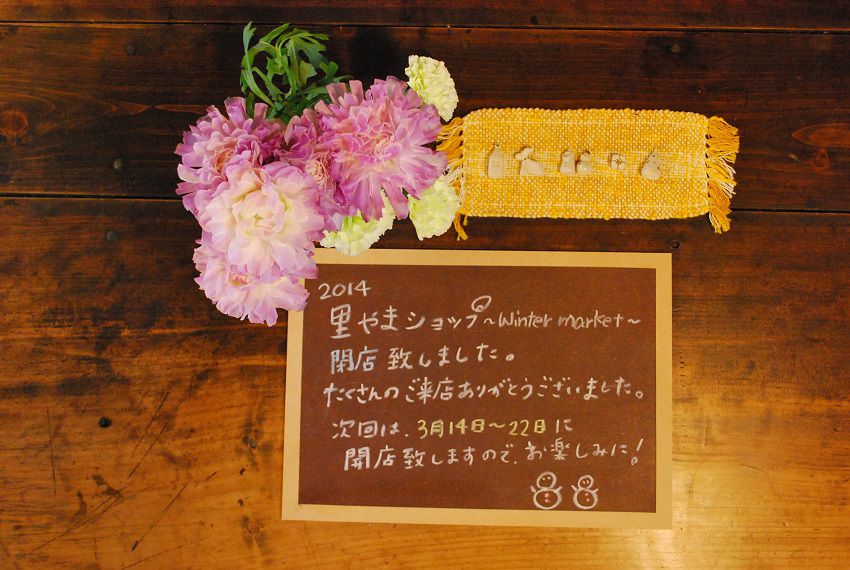 2014
里やまショップ～Winter market～
閉店致しました。
たくさんのご来店ありがとうございました。
次回は、3月14日～22日に
開店致しますので、お楽しみに！